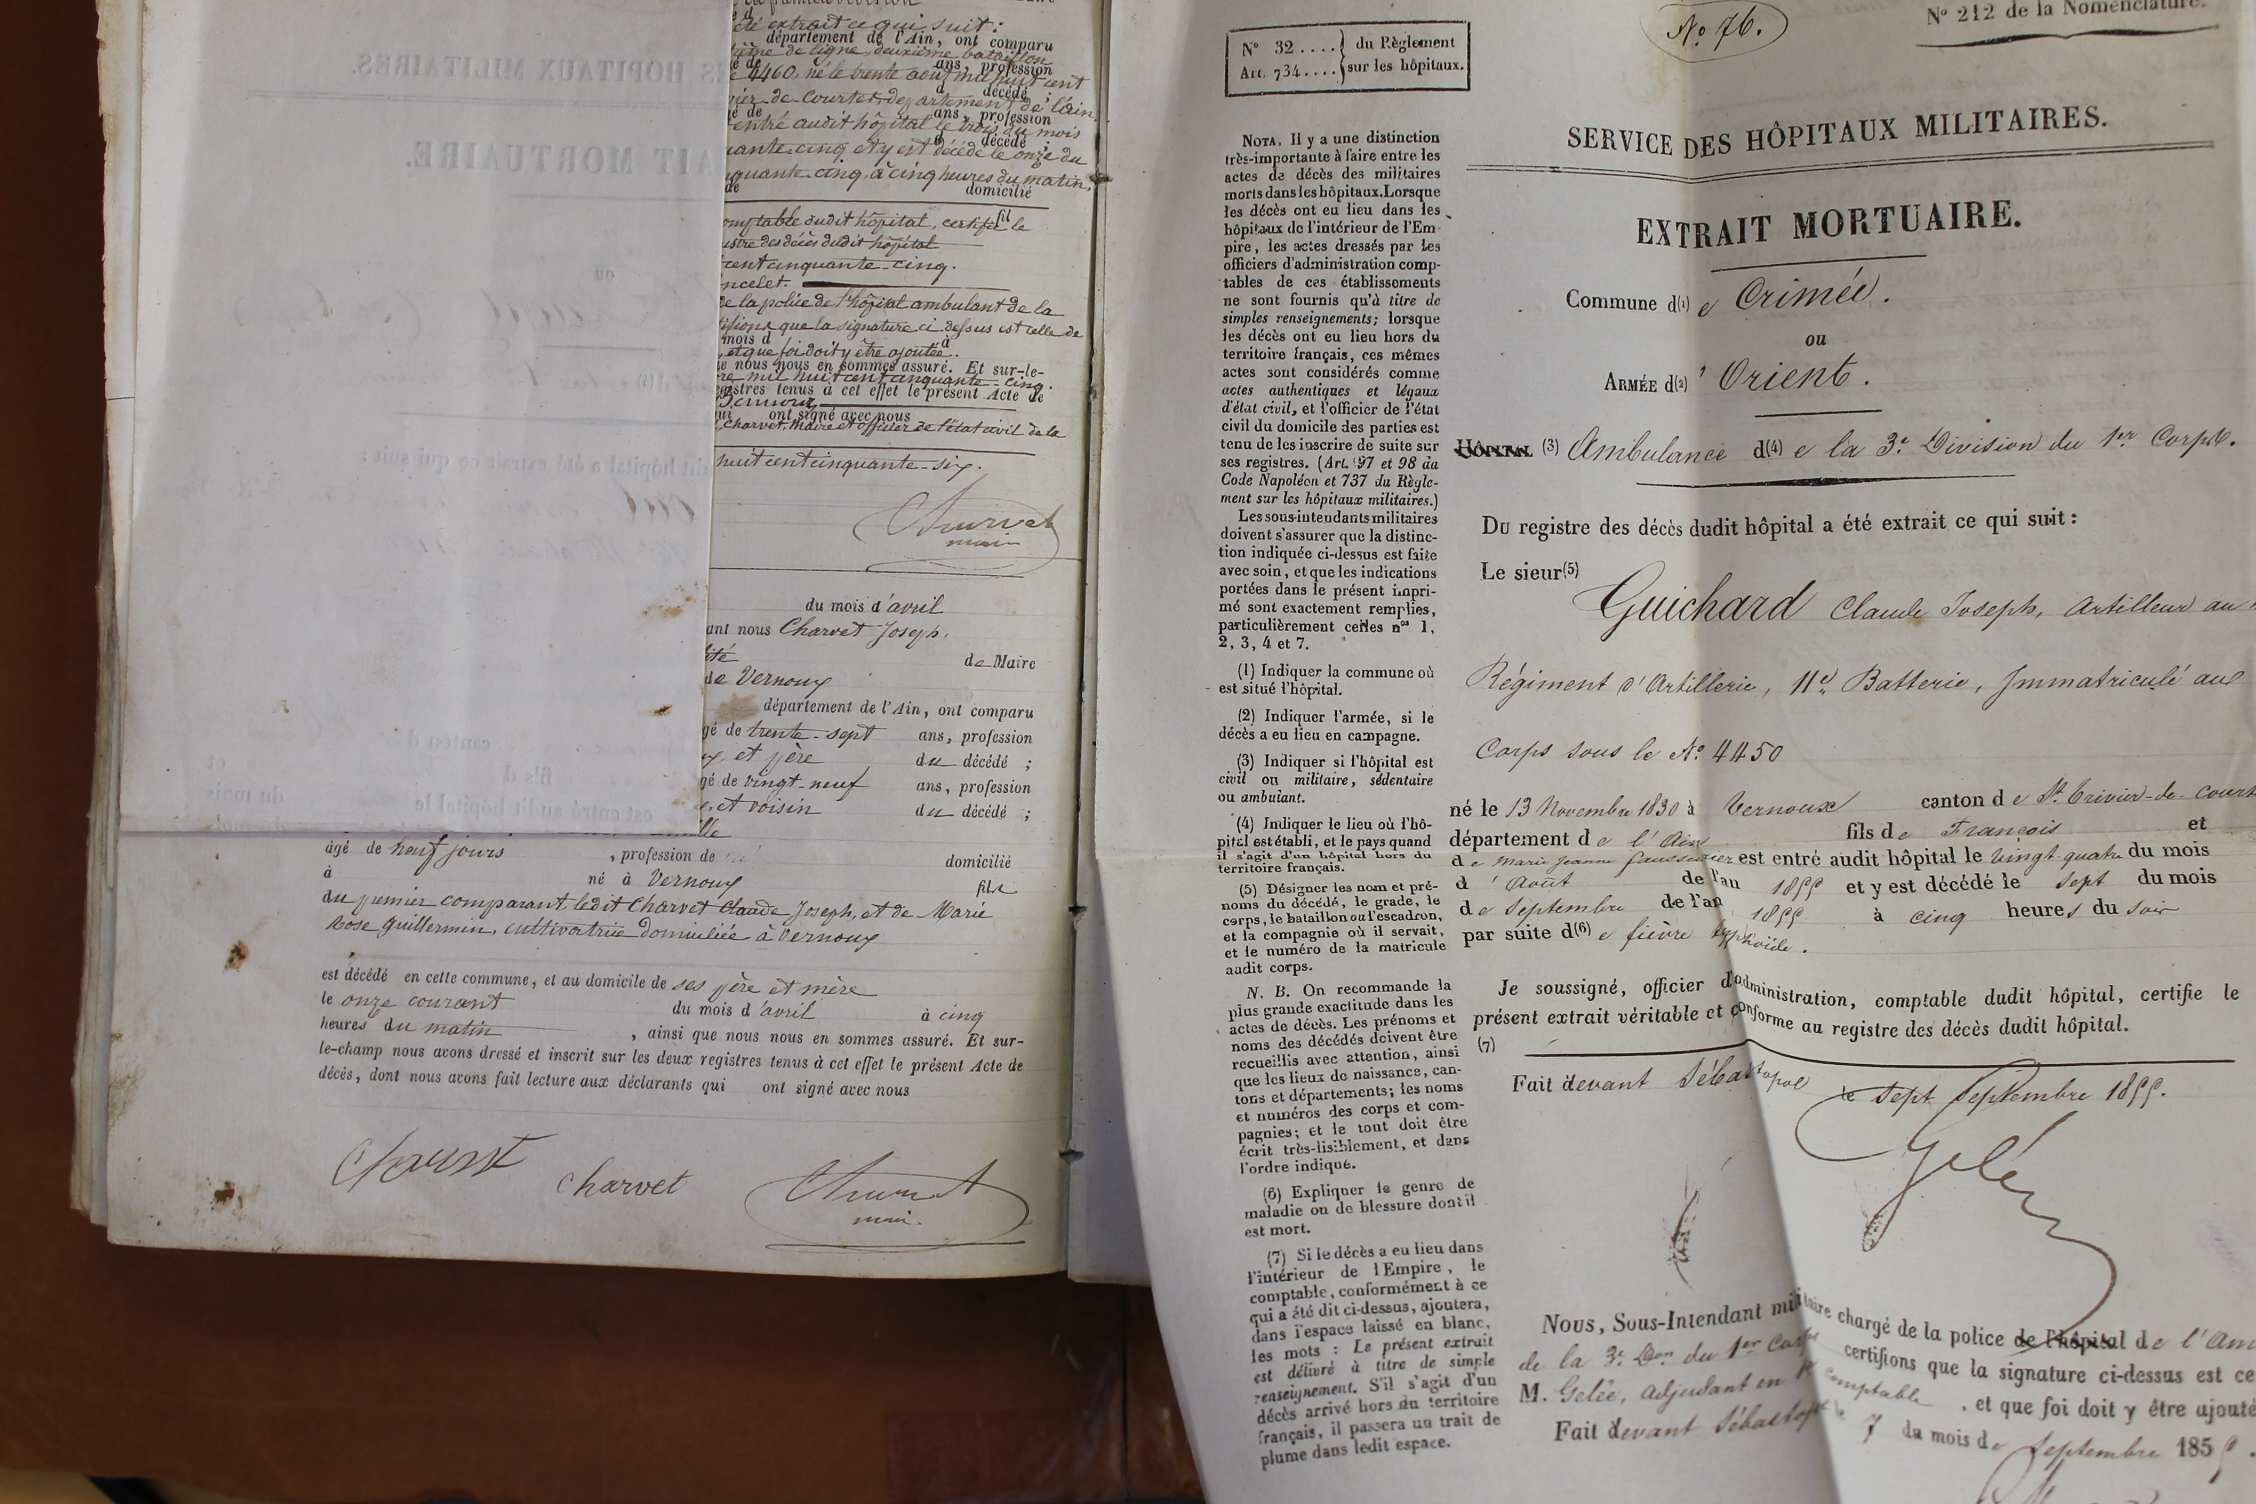 été extrait ce qui suit :
département de l'Ain, ont comparu
de ligne, deuxième bataillon
ans, profession
4460, né le trente août mil huit cent
d décédé ;
de Courtes, département de l'Ain,
ans, profession
entré audit hôpital le trois du mois
d décédé ;
cinq et y est décédé le onze du
cinq, à cinq heures du matin,
de domicilié
fil
comptable dudit hôpital, certifie le
des décès dudit hôpital
cent cinquante-cinq.
de la police de l'hôpital ambulant de la
que la signature ci-dessus est celle de
mois d à
et que foi doit y être ajoutée.
nous nous en sommes assuré. Et sur-le-
mil huit cent cinquante-cinq.
registres tenus à cet effet le présent Acte de
Vernoux
qui ont signé avec nous
Charvet, Maire et officier de l'état civil de la
huit cent cinquante-six.
Charvet
maire
du mois d'avril
nous Charvet Joseph,
de Maire
de Vernoux
département de l'Ain, ont comparu
gé de trente-sept ans, profession
et père du décédé ;
gé de vingt-neuf ans, profession
et voisin du décédé ;
âgé de neuf jours , profession de domicilié
à né à Vernoux fils
du premier comparant, ledit Charvet Claude Joseph, et de Marie
Rose Guillermin, cultivatrice domiciliée à Vernoux
est décédé en cette commune, et au domicile de ses père et mère
le onze courant du mois d'avril à cinq
heures du matin , ainsi que nous nous en sommes assuré. Et sur-
le-champ nous avons dressé et inscrit sur les deux registres tenus à cet effet le présent Acte de
décès, dont nous avons fait lecture aux déclarants qui ont signé avec nous
Charvet
Charvet
Charvet
maire.
N° 32 .... } du Règlement
Art. 734 .... } sur les hôpitaux.
No 76.
N° 212 de la Nomenclature.
SERVICE DES HÔPITAUX MILITAIRES.
EXTRAIT MORTUAIRE.
Commune d(1) e Crimée.
ou
ARMÉE d(2) 'Orient.
HÔPITAL (3) Ambulance d(4) e la 3e Division du 1er Corps.
Du registre des décès dudit hôpital a été extrait ce qui suit :
Le sieur(5)
Guichard Claude Joseph, Artilleur au
Régiment d'Artillerie, 11e Batterie, Immatriculé au
Corps sous le No 4450
né le 13 Novembre 1830 à Vernoux canton d e St Trivier-de-Court
département d e l'Ain fils d e François et
d e Marie Jeanne est entré audit hôpital le vingt-quatre du mois
d 'Août de l'an 1855 et y est décédé le sept du mois
d e Septembre de l'an 1855 à cinq heures du soir
par suite d(6) e fièvre typhoïde.
Je soussigné, officier d'administration, comptable dudit hôpital, certifie le
présent extrait véritable et conforme au registre des décès dudit hôpital.
(7)
Fait devant Sébastopol le sept Septembre 1855.
Gelée
Nous, Sous-Intendant militaire chargé de la police de l'hôpital de l'Am
de la 3e Don du 1er Corps certifions que la signature ci-dessus est ce
M. Gelée, adjudant en comptable , et que foi doit y être ajouté
Fait devant Sébastopol le 7 du mois de Septembre 1855.
NOTA. Il y a une distinction
très-importante à faire entre les
actes de décès des militaires
morts dans les hôpitaux. Lorsque
les décès ont eu lieu dans les
hôpitaux de l'intérieur de l'Em-
pire, les actes dressés par les
officiers d'administration comp-
tables de ces établissements
ne sont fournis qu'à titre de
simples renseignements; lorsque
les décès ont eu lieu hors du
territoire français, ces mêmes
actes sont considérés comme
actes authentiques et légaux
d'état civil, et l'officier de l'état
civil du domicile des parties est
tenu de les inscrire de suite sur
ses registres. (Art. 97 et 98 du
Code Napoléon et 737 du Règle-
ment sur les hôpitaux militaires.)
Les sous-intendants militaires
doivent s'assurer que la distinc-
tion indiquée ci-dessus est faite
avec soin, et que les indications
portées dans le présent impri-
mé sont exactement remplies,
particulièrement celles nos 1,
2, 3, 4 et 7.
(1) Indiquer la commune où
est situé l'hôpital.
(2) Indiquer l'armée, si le
décès a eu lieu en campagne.
(3) Indiquer si l'hôpital est
civil ou militaire, sédentaire
ou ambulant.
(4) Indiquer le lieu où l'hô-
pital est établi, et le pays quand
il s'agit d'un hôpital hors du
territoire français.
(5) Désigner les nom et pré-
noms du décédé, le grade, le
corps, le bataillon ou l'escadron,
et la compagnie où il servait,
et le numéro de la matricule
audit corps.
N. B. On recommande la
plus grande exactitude dans les
actes de décès. Les prénoms et
noms des décédés doivent être
recueillis avec attention, ainsi
que les lieux de naissance, can-
tons et départements; les noms
et numéros des corps et com-
pagnies; et le tout doit être
écrit très-lisiblement, et dans
l'ordre indiqué.
(6) Expliquer le genre de
maladie ou de blessure dont il
est mort.
(7) Si le décès a eu lieu dans
l'intérieur de l'Empire, le
comptable, conformément à ce
qui a été dit ci-dessus, ajoutera,
dans l'espace laissé en blanc,
les mots : Le présent extrait
est délivré à titre de simple
renseignement. S'il s'agit d'un
décès arrivé hors du territoire
français, il passera un trait de
plume dans ledit espace.